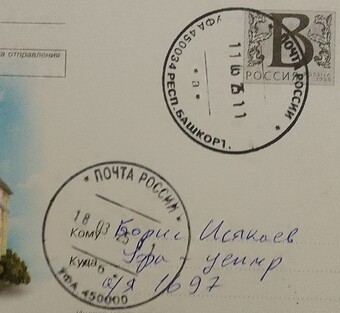 а отправления
УФА 450034 РЕСП. БАШКОРТ. * ПОЧТА РОССИИ *
* а *
В
РОССИЯ
* ПОЧТА РОССИИ *
18 03
УФА 450000
Кому Борис Исякаев
Куда Уфа - центр
а/я 1697